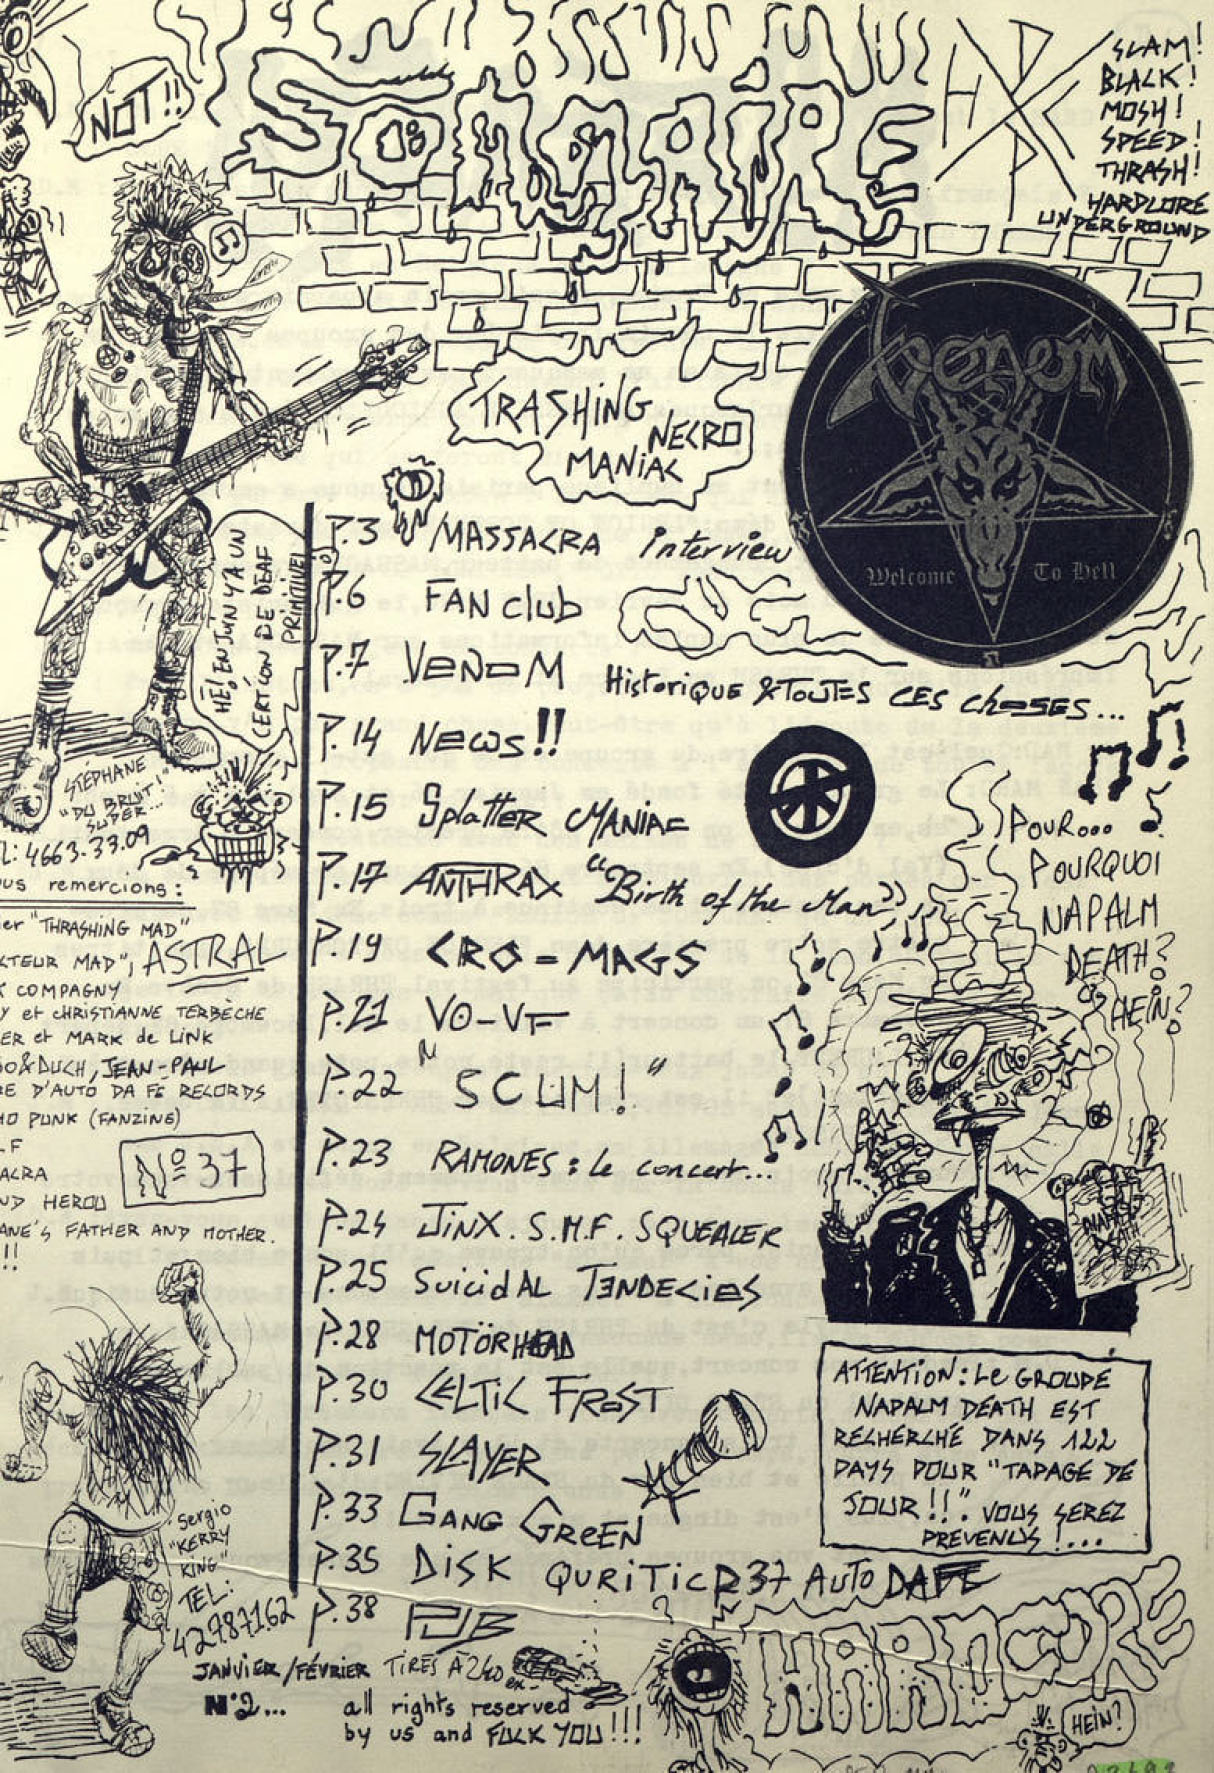 NOT!!
SOMMAIRE
HXC
SLAM!
BLACK!
MOSH!
SPEED!
THRASH!
HARDCORE
UNDERGROUND
VENOM
Welcome To Hell
TRASHING
NECRO
MANIAC
HÉ! EN JUN Y'A UN
CERTION DE DEAF
P.3 MASSACRA interview
P.6 FAN club
P.7 VENOM
Historique & TOUTES CES CHOSES...
P.14 News!!
P.15 Splatter MANIAC
P.17 ANTHRAX "Birth of the Man"
P.19 CRO-MAGS
P.21 VO-VF
P.22 "SCUM!"
P.23 RAMONES: Le concert...
P.24 JINX. S.M.F. SQUEALER
P.25 SuicidAL TENDECIES
P.28 MOTÖRHEAD
P.30 CELTIC FROST
P.31 SLAYER
P.33 GANG GREEN
P.35 DISK QURITIC P37 AUTO DAFE
P.38 PUB
POUR...
POURQUOI
NAPALM
DEATH?
HEIN?
NAPALM
DEATH
ATTENTION: LE GROUPE
NAPALM DEATH EST
RECHERCHÉ DANS 122
PAYS POUR "TAPAGE DE
JOUR!!". VOUS SEREZ
PREVENUS!...
STÉPHANE
"DU BRUIT!"
SUPER
L: 4663.33.09
ous remercions:
ier "THRASHING MAD"
CTEUR MAD", ASTRAL
K COMPAGNY
Y et CHRISTIANNE TERBÈCHE
ER et MARK de LINK
O & DUCH, JEAN-PAUL
RE D'AUTO DA FE RECORDS
MO PUNK (FANZINE)
LF
ACRA
ND HEROU
ANE'S FATHER AND MOTHER.
!!
N° 37
Sergio
"KERRY
KING"
TEL:
42987162
JANVIER/FÉVRIER TIRÉS A 240 ex
N°2...
all rights reserved
by us and FUCK YOU!!!
HARDCORE
HEIN?